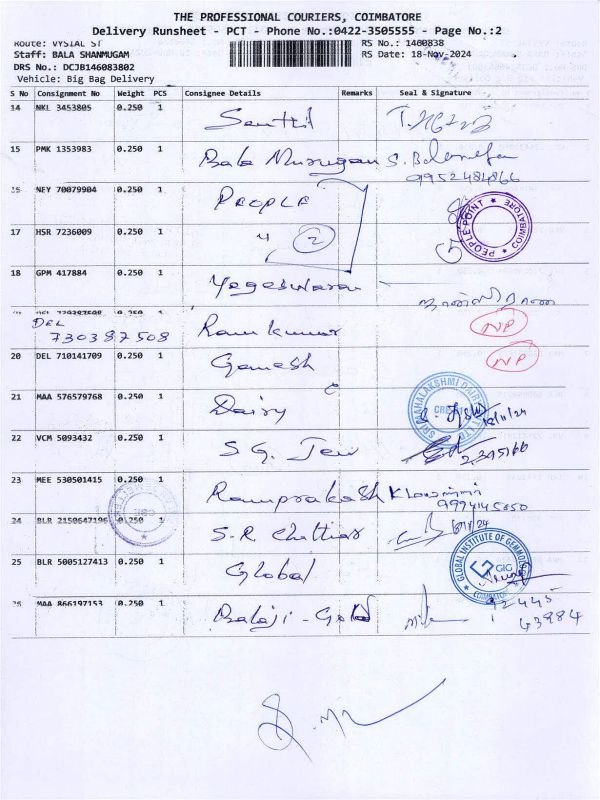 THE PROFESSIONAL COURIERS, COIMBATORE
Delivery Runsheet - PCT - Phone No.:0422-3505555 - Page No.:2
Route: VYSIAL ST RS No.: 1460838
Staff: BALA SHANMUGAM RS Date: 18-Nov-2024
DRS No.: DCJB146083802
Vehicle: Big Bag Delivery
S No Consignment No Weight PCS Consignee Details Remarks Seal & Signature
14 NKL 3453805 0.250 1 Senthil
15 PMK 1353983 0.250 1 Bala Murugan S. Balamurugan
9952484866
16 NEY 70079904 0.250 1 PEOPLE
PEOPLE POINT ★ COIMBATORE ★
17 HSR 7236009 0.250 1 4 2
18 GPM 417884 0.250 1 Yogeswaran
DEL 730387508 Ramkumar NP
20 DEL 710141709 0.250 1 Ganesh NP
21 MAA 576579768 0.250 1 Dairy
SRI MAHALAKSHMI DAIRY
18/11/24
22 VCM 5093432 0.250 1 S.G. Jew
23 MEE 530501415 0.250 1 Ramprakash
24 BLR 2150647196 0.250 1 S.R. Chettiar
25 BLR 5005127413 0.250 1 Global
GLOBAL INSTITUTE OF GEMMOLOGY
GIG
COIMBATORE
26 MAA 866197153 0.250 1 Balaji - Gold
92445
43984